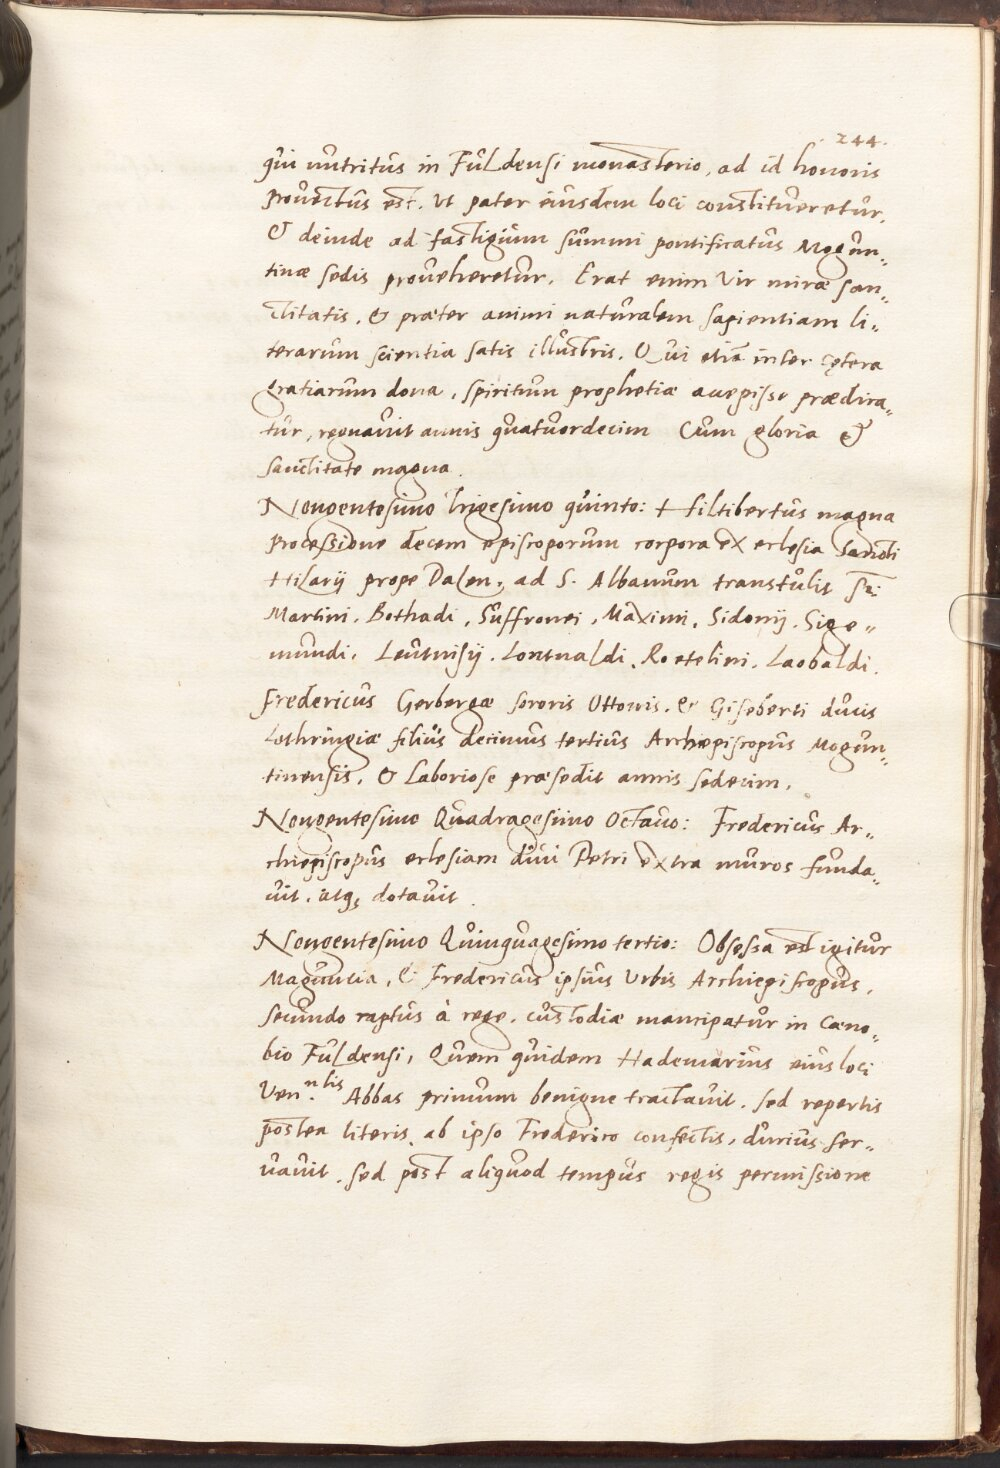 244.
qui nutritus in Fuldensi monasterio, ad id honoris
provectus est. Ut pater eiusdem loci constitueretur.
& deinde ad fastigium summi pontificatus Mogun„
tinæ sedis proveheretur. Erat enim Vir miræ san„
ctitatis, & præter animi naturalem sapientiam li„
terarum scientia satis illustris. Qui etiā inter cętera
gratiarum dona, spiritum prophetiæ accepisse prædica„
tur, regnavit annis quatuordecim Cum gloria &
sanctitate magna.
Nongentesimo trigesimo quinto: Hiltibertus magna
processione decem episcoporum corpora ex eclesia Sancti
Hilarij prope Dalen, ad S. Albanum transtulit S:
Martini. Bothadi, Suffronei, Maximi, Sidonij. Sige„
mundi. Leutnisij. Lontualdi. Roetelini. Laobaldi.
Fredericus Gerbergæ sororis Ottonis. & Giseberti ducis
Lothringiæ filius decimus tertius Archiepiscopus Mogun„
tinensis, & Laboriose præsedit annis sedecim.
Nongentesimo Quadragesimo Octavo: Fredericus Ar„
chiepiscopus eclesiam divi Petri extra muros funda„
vit. atq; dotavit.
Nongentesimo Quinquagesimo tertio: Obsessa est igitur
Maguncia, & Fredericus ipsius Urbis Archiepiscopus,
secundo raptus à rege. custodiæ mancipatur in Cæno„
bio Fuldensi, Quem quidem Hademarius eius loci
Ven.nlis Abbas primum benigne tractavit. sed repertis
postea literis ab ipso Frederico confectis, durius ser„
vavit. sed post aliquod tempus regis permissione